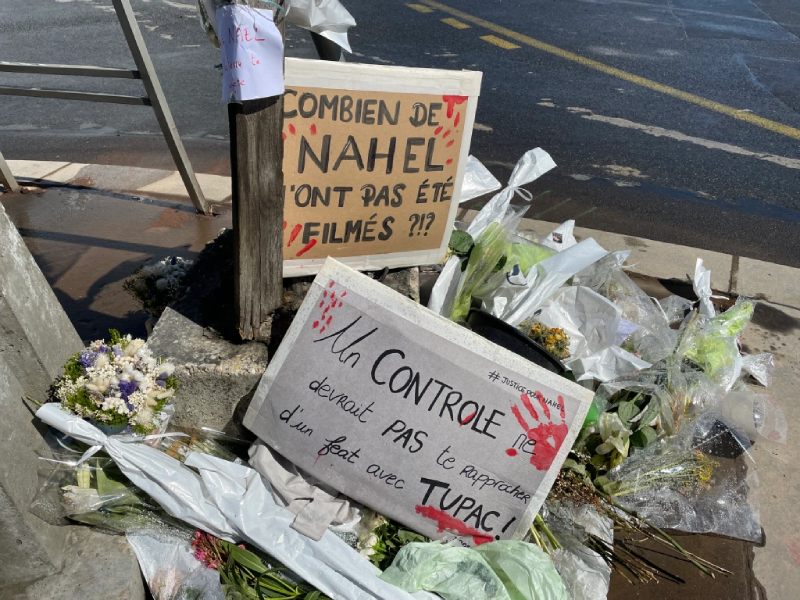 NAHEL
COMBIEN DE
NAHEL
N'ONT PAS ÉTÉ
FILMÉS ?!?
#JUSTICEPOURNAHEL
Un CONTROLE ne
devrait PAS te rapprocher
d'un feat avec
TUPAC!